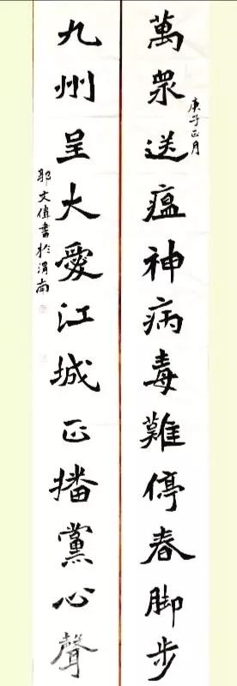 萬眾送瘟神病毒難停春腳步
庚子正月
九州呈大愛江城正播黨心聲
文值書於渭南